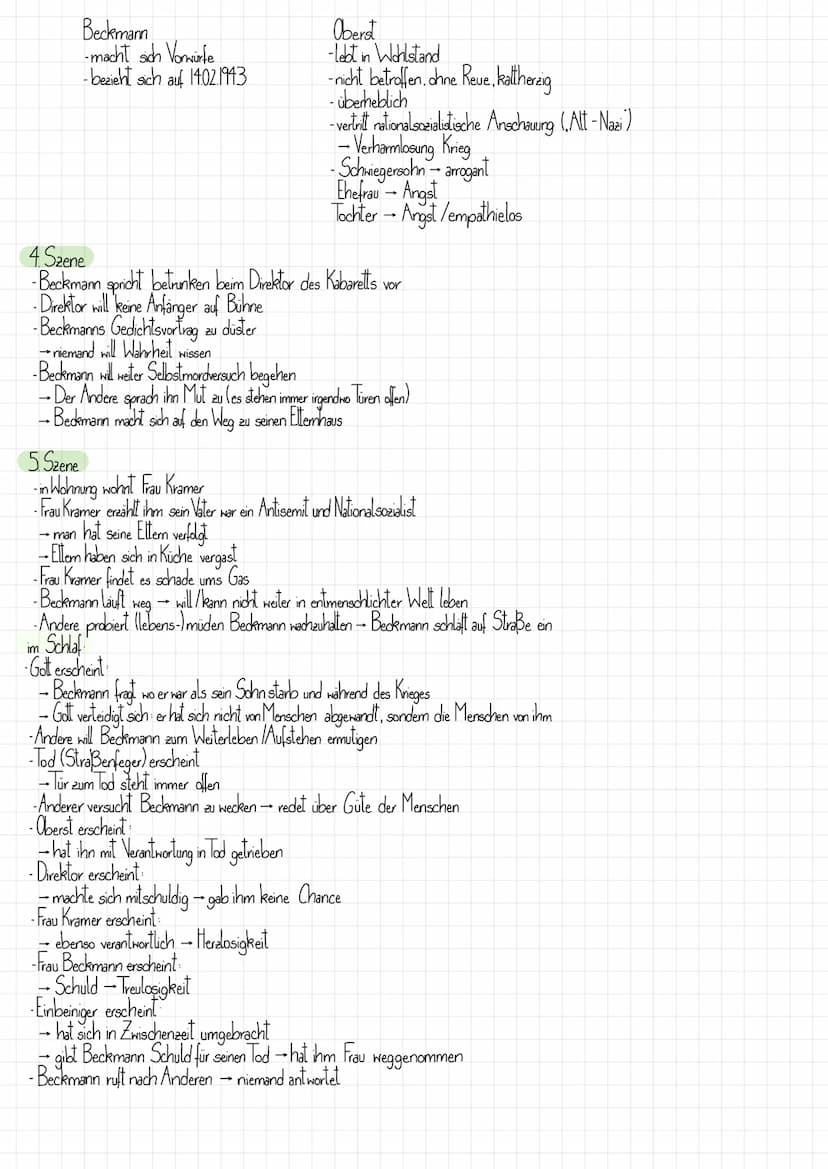 Beckmann
-macht sich Vorwürfe
-bezieht sich auf 14.02.1943
Oberst
-lebt in Wohlstand
-nicht betroffen, ohne Reue, kaltherzig
-überheblich
-vertritt nationalsozialistische Anschauung („Alt-Nazi“)
→ Verharmlosung Krieg
-Schwiegersohn → arrogant
Ehefrau → Angst
Tochter → Angst/empathielos
4. Szene
-Beckmann spricht betrunken beim Direktor des Kabaretts vor
-Direktor will keine Anfänger auf Bühne
-Beckmanns Gedichtsvortrag zu düster
→ niemand will Wahrheit wissen
-Beckmann will weiter Selbstmordversuch begehen
→ Der Andere sprach ihn Mut zu (es stehen immer irgendwo Türen offen)
→ Beckmann macht sich auf den Weg zu seinen Elternhaus
5. Szene
-in Wohnung wohnt Frau Kramer
-Frau Kramer erzählt ihm sein Vater war ein Antisemit und Nationalsozialist
→ man hat seine Eltern verfolgt
→ Eltern haben sich in Küche vergast
-Frau Kramer findet es schade ums Gas
-Beckmann läuft weg → will/kann nicht weiter in entmenschlichter Welt leben
-Andere probiert (lebens-)müden Beckmann wachzuhalten → Beckmann schläft auf Straße ein
im Schlaf:
-Gott erscheint:
→ Beckmann fragt wo er war als sein Sohn starb und während des Krieges
→ Gott verteidigt sich: er hat sich nicht von Menschen abgewandt, sondern die Menschen von ihm
-Andere will Beckmann zum Weiterleben/Aufstehen ermutigen
-Tod (Straßenfeger) erscheint
→ Tür zum Tod steht immer offen
-Anderer versucht Beckmann zu wecken → redet über Güte der Menschen
-Oberst erscheint:
→ hat ihn mit Verantwortung in Tod getrieben
-Direktor erscheint:
→ machte sich mitschuldig → gab ihm keine Chance
-Frau Kramer erscheint:
→ ebenso verantwortlich → Herzlosigkeit
-Frau Beckmann erscheint:
→ Schuld → Treulosigkeit
-Einbeiniger erscheint:
→ hat sich in Zwischenzeit umgebracht
→ gibt Beckmann Schuld für seinen Tod → hat ihm Frau weggenommen
-Beckmann ruft nach Anderen → niemand antwortet